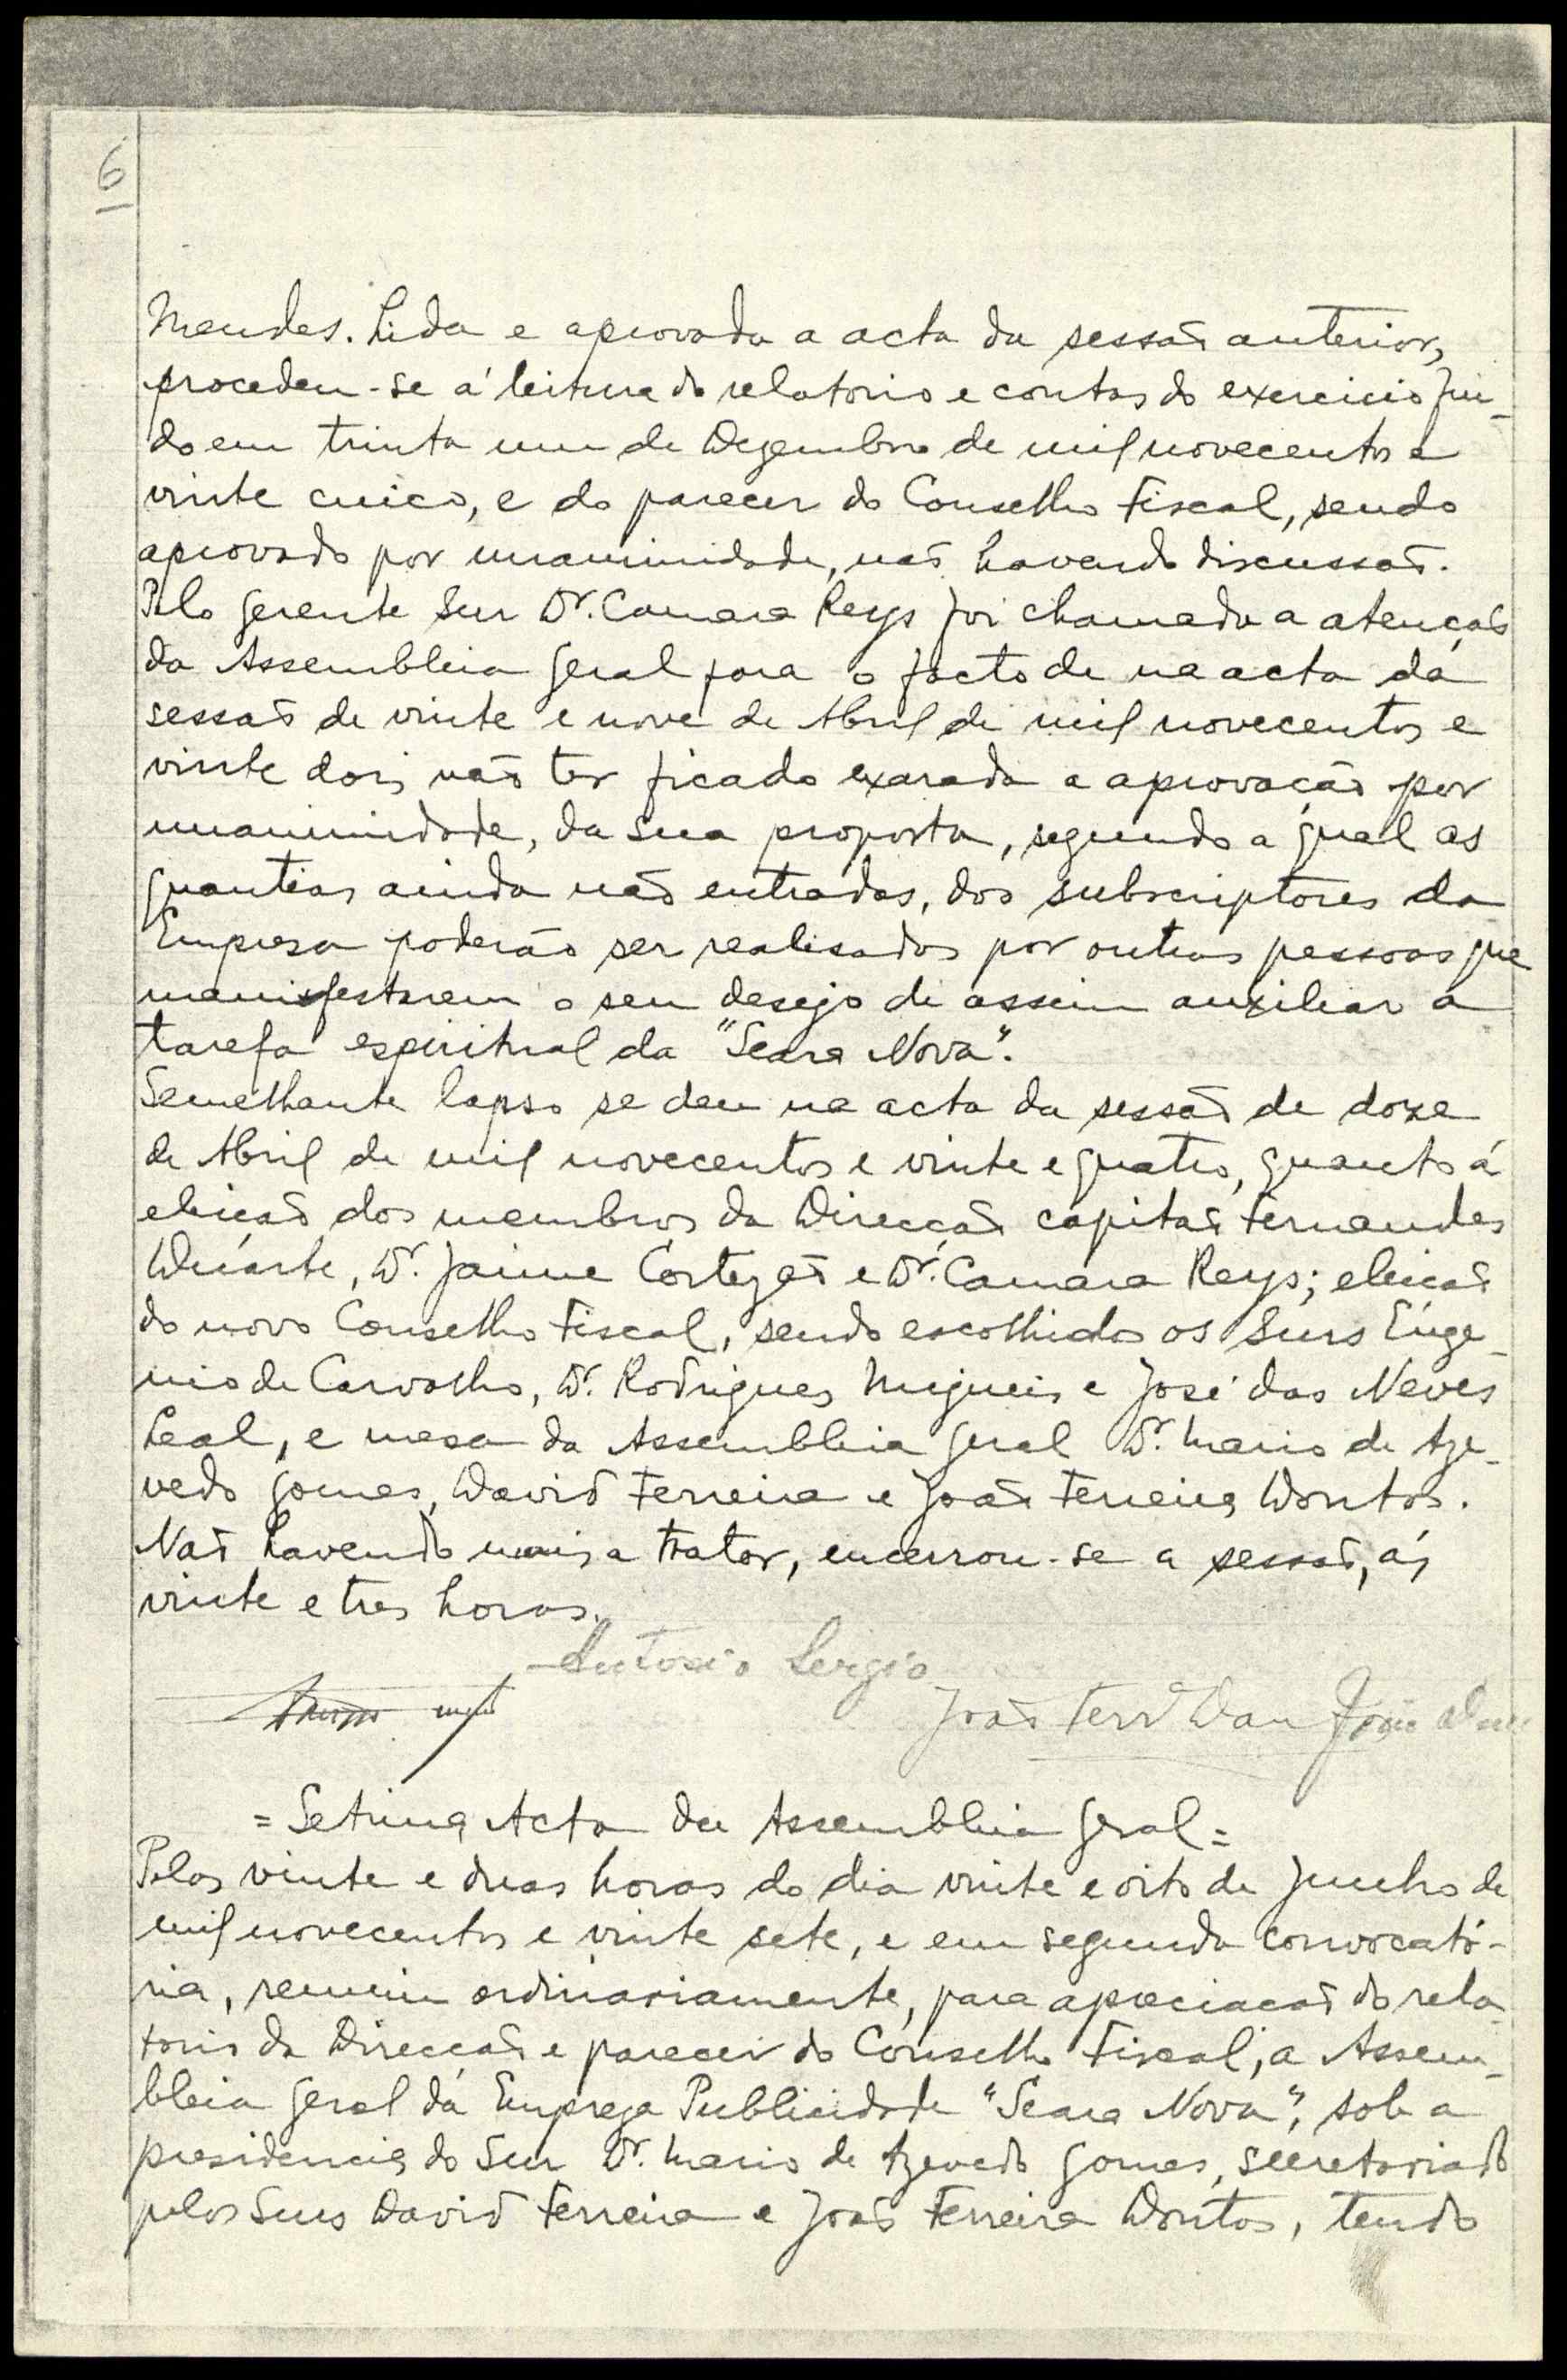 6
Mendes. Lida e aprovada a acta da sessão anterior,
procedeu-se á leitura do relatorio e contas do exercicio fin-
do em trinta um de Dezembro de mil novecentos e
vinte cinco, e do parecer do Conselho Fiscal, sendo
aprovado por unanimidade, não havendo discussão.
Pelo gerente Snr Dr. Camara Reys foi chamada a atenção
da Assembleia Geral para o facto de na acta da
sessão de vinte e nove de Abril de mil novecentos e
vinte dois não ter ficado exarada a aprovação por
unanimidade, da sua proposta, segundo a qual as
quantias ainda não entradas, dos subscriptores da
Empresa poderão ser realisadas por outras pessoas que
manifestarem o seu desejo de assim auxiliar a
tarefa espiritual da "Seara Nova".
Semelhante lapso se deu na acta da sessão de doze
de Abril de mil novecentos e vinte e quatro, quanto á
eleição dos membros da Direcção capitão Fernandes
Duarte, Dr. Jaime Cortezão e Dr. Camara Reys; eleição
do novo Conselho Fiscal, sendo escolhidos os Snrs Euge-
nio de Carvalho, Dr. Rodrigues Migueis e José das Neves
Leal, e mesa da Assembleia Geral Dr. Mario de Aze-
vedo Gomes, David Ferreira e João Ferreira Dontos.
Não havendo mais a tratar, encerrou-se a sessão, ás
vinte e tres horas.
Antonio Sergio
João Ferr.ª
= Setima Acta da Assembleia Geral =
Pelas vinte e duas horas do dia vinte e oito de Junho de
mil novecentos e vinte sete, e em segunda convocató-
ria, reuniu ordinariamente, para apreciação do rela-
torio da Direcção e parecer do Conselho Fiscal, a Assem-
bleia Geral da Empreza Publicidade "Seara Nova", sob a
presidencia do Snr Dr. Mario de Azevedo Gomes, secretariado
pelos Snrs David Ferreira e João Ferreira Dontos, tendo